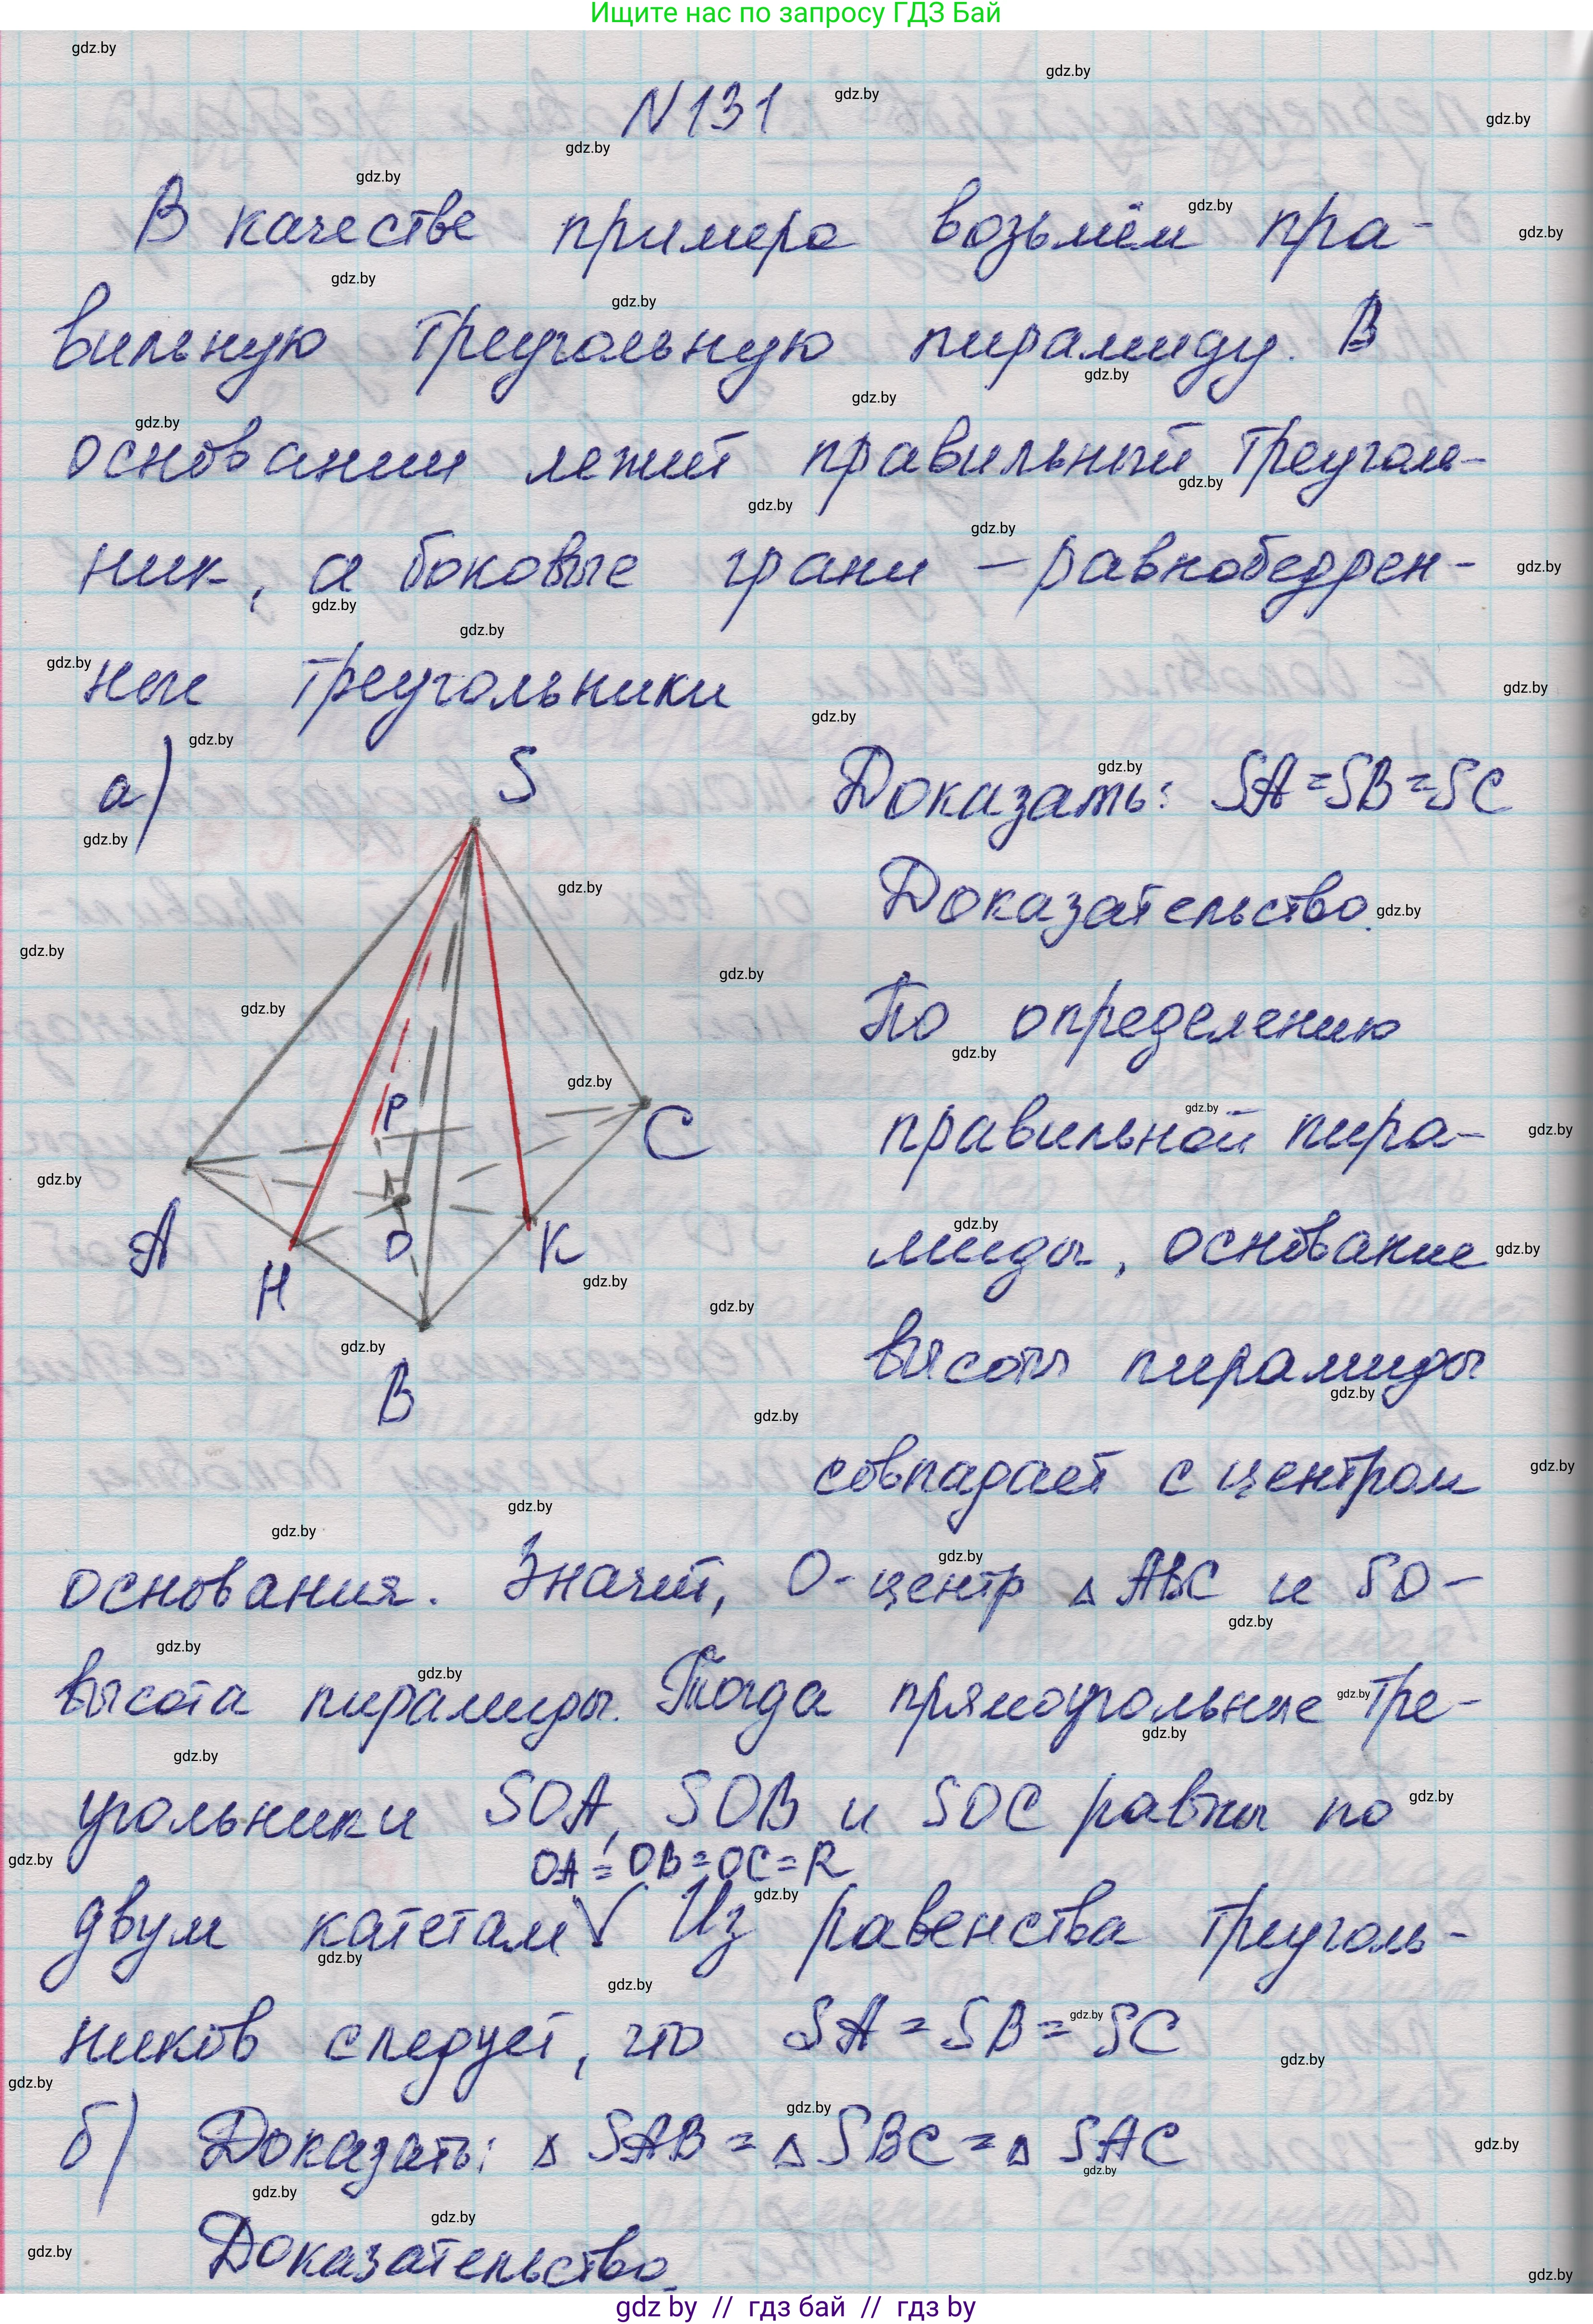 Ищите нас по запросу ГДЗ Бай
N 131
В качестве примера возьмём пра-
вильную треугольную пирамиду. В
основании лежит правильный треуголь-
ник, а боковые грани – равнобедрен-
ные треугольники
а)
S
Доказать: SA = SB = SC
Доказательство.
По определению
правильной пира-
миды, основание
высоты пирамиды
совпадает с центром
P
C
A
H
O
K
B
основания. Значит, O - центр △ ABC и SO -
высота пирамиды. Тогда прямоугольные тре-
угольники SOA, SOB и SOC равны по
OA = OB = OC = R
двум катетам √ Из равенства треуголь-
ников следует, что SA = SB = SC
б) Доказать: △ SAB = △ SBC = △ SAC
Доказательство.
gdz by // гдз бай // гдз by
gdz.by